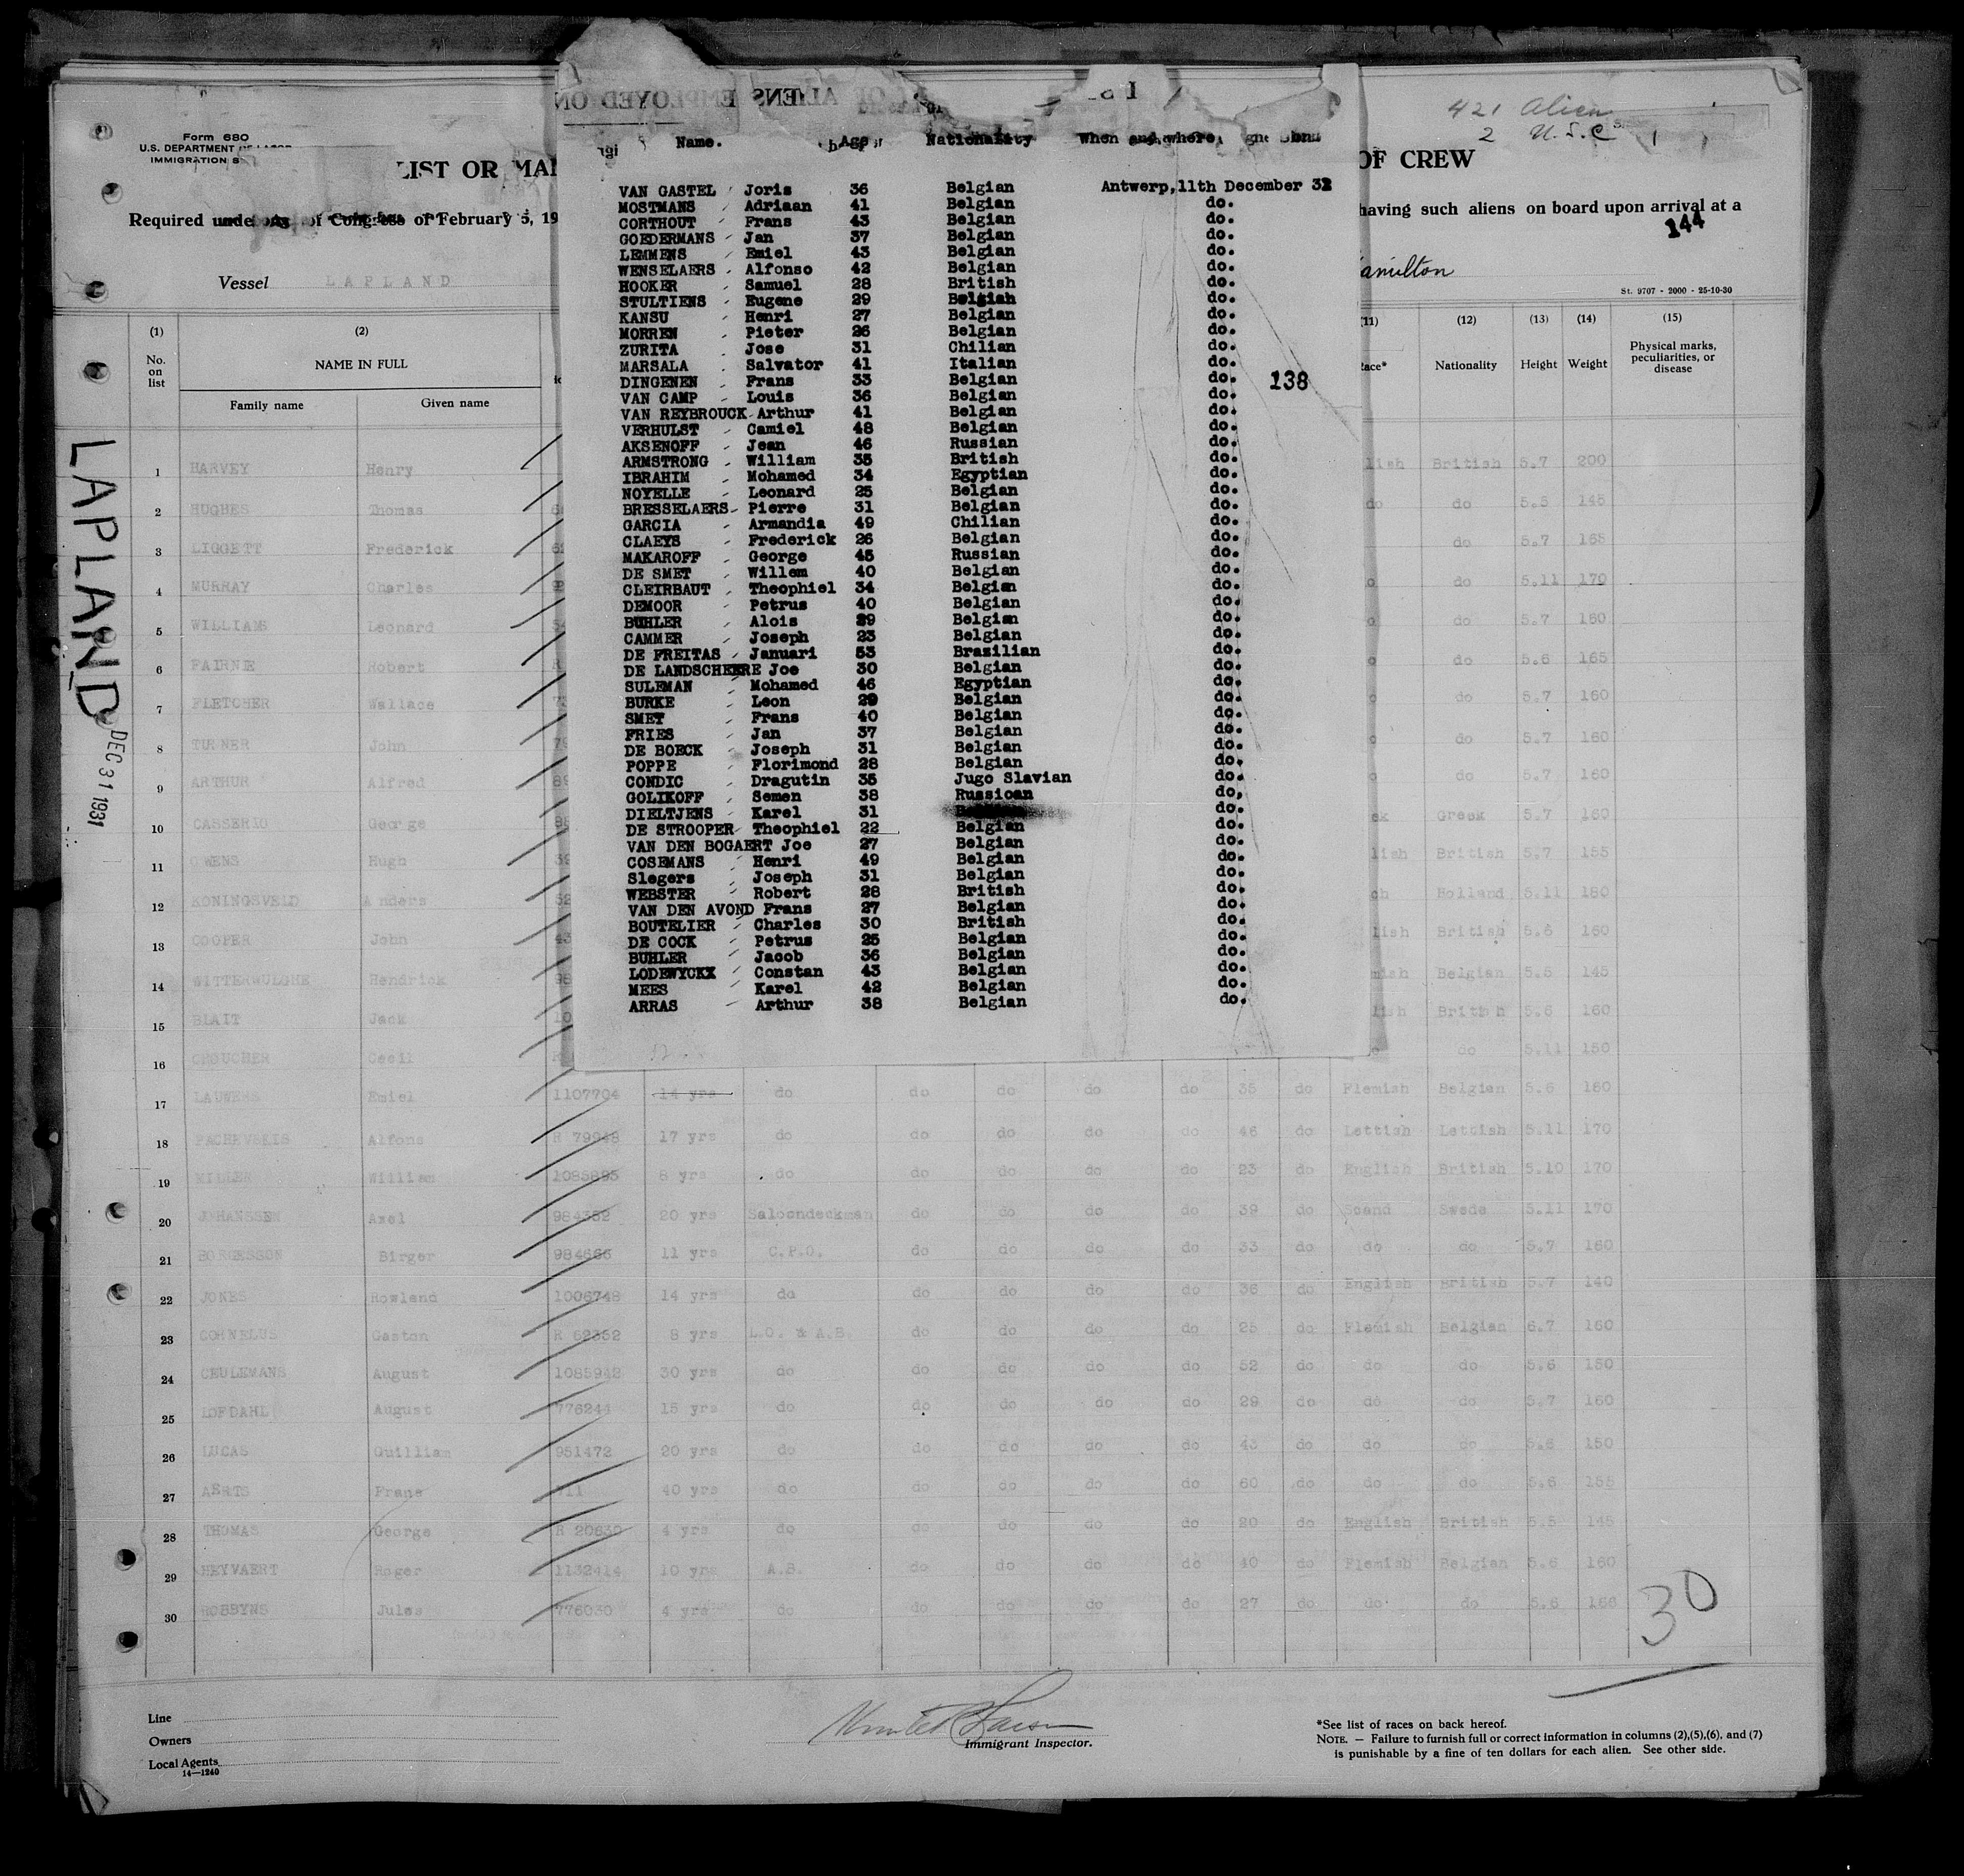 421 Alien
2 U.S.C
Form 680
U.S. DEPARTMENT OF LABOR
IMMIGRATION S
LIST OR MAN
OF CREW
Required under of Congress of February 5, 19
having such aliens on board upon arrival at a
144
Vessel LAPLAND
Hamilton
St. 9707 - 2000 - 25-10-30
ALIENS EMPLOYED ON
Name. Age Nationality When and where
VAN GASTEL Joris 36 Belgian Antwerp, 11th December 32
MOSTMANS Adriaan 41 Belgian do.
CORTHOUT Frans 43 Belgian do.
GOEDERMANS Jan 37 Belgian do.
LEMMENS Emiel 43 Belgian do.
WENSELAERS Alfonso 42 Belgian do.
HOOKER Samuel 28 British do.
STULTIENS Eugene 29 Belgian do.
KANSU Henri 27 Belgian do.
MORREN Pieter 26 Belgian do.
ZURITA Jose 31 Chilian do.
MARSALA Salvator 41 Italian do.
DINGENEN Frans 33 Belgian do. 138
VAN CAMP Louis 36 Belgian do.
VAN REYBROUCK Arthur 41 Belgian do.
VERHULST Camiel 48 Belgian do.
AKSENOFF Jean 46 Russian do.
ARMSTRONG William 35 British do.
IBRAHIM Mohamed 34 Egyptian do.
NOYELLE Leonard 25 Belgian do.
BRESSELAERS Pierre 31 Belgian do.
GARCIA Armandia 49 Chilian do.
CLAEYS Frederick 26 Belgian do.
MAKAROFF George 45 Russian do.
DE SMET Willem 40 Belgian do.
CLEIRBAUT Theophiel 34 Belgian do.
DEMOOR Petrus 40 Belgian do.
BUHLER Alois 29 Belgian do.
CAMMER Joseph 23 Belgian do.
DE FREITAS Januari 53 Brazilian do.
DE LANDSCHEERE Joe 30 Belgian do.
SULEMAN Mohamed 46 Egyptian do.
BURKE Leon 29 Belgian do.
SMET Frans 40 Belgian do.
FRIES Jan 37 Belgian do.
DE BOECK Joseph 31 Belgian do.
POPPE Florimond 28 Belgian do.
CONDIC Dragutin 35 Jugo Slavian do.
GOLIKOFF Semen 38 Russioan do,
DIELTJENS Karel 31 do.
DE STROOPER Theophiel 22 Belgian do.
VAN DEN BOGAERT Joe 27 Belgian do.
COSEMANS Henri 49 Belgian do.
Slegers Joseph 31 Belgian do.
WEBSTER Robert 28 British do.
VAN DEN AVOND Frans 27 Belgian do.
BOUTELIER Charles 30 British do.
DE COCK Petrus 25 Belgian do.
BUHLER Jacob 36 Belgian do.
LODEWYCKX Constan 43 Belgian do.
MEES Karel 42 Belgian do.
ARRAS Arthur 38 Belgian do.
(1) (2) (11) (12) (13) (14) (15)
No. on list NAME IN FULL Race* Nationality Height Weight Physical marks, peculiarities, or disease
Family name Given name
LAPLAND
DEC 31 1931
1 HARVEY Henry lish British 5.7 200
2 HUGHES Thomas do do 5.5 145
3 LIGGETT Frederick do 5.7 165
4 MURRAY Charles o do 5.11 170
5 WILLIAMS Leonard o do 5.7 160
6 FAIRNIE Robert o do 5.6 165
7 FLETCHER Wallace o do 5.7 160
8 TURNER John o do 5.7 160
9 ARTHUR Alfred o do 5.7 160
10 CASSERIO George ek Greek 5.7 160
11 OWENS Hugh lish British 5.7 155
12 KONINGSVELD Anders ch Holland 5.11 180
13 COOPER John lish British 5.6 160
14 WITTERWULGHE Hendrick mish Belgian 5.5 145
15 BLAIT Jack lish British 5.6 160
16 CROUCHER Cecil do 5.11 150
17 LAUWERS Emiel 1107704 14 yrs do do do do do 35 do Flemish Belgian 5.6 160
18 PACHEVSKIS Alfons R 79948 17 yrs do do do do do 46 do Lettish Lettish 5.11 170
19 MILLER William 1085895 8 yrs do do do do do 23 do English British 5.10 170
20 JOHANSSEN Axel 984352 20 yrs Saloondeckman do do do do 39 do Scand Swede 5.11 170
21 BORGESSON Birger 984666 11 yrs C.P.O. do do do do 33 do do do 5.7 160
22 JONES Rowland 1006748 14 yrs do do do do do 36 do English British 5.7 140
23 CORNELUS Gaston R 62352 8 yrs L.O. & A.B. do do do do 25 do Flemish Belgian 6.7 160
24 CEULEMANS August 1085942 30 yrs do do do do do 52 do do do 5.6 150
25 LOFDAHL August 776244 15 yrs do do do do do 29 do do do 5.7 160
26 LUCAS Guilliam 951472 20 yrs do do do do do 43 do do do 5.6 150
27 AERTS Frans 40 yrs do do do do do 60 do do do 5.6 155
28 THOMAS George R 20630 4 yrs do do do do do 20 do English British 5.5 145
29 HEYVAERT Roger 1132414 10 yrs A.B. do do do do 40 do Flemish Belgian 5.6 160
30 ROBBYNS Jules 776030 4 yrs do do do do do 27 do do do 5.6 166
30
Line
Owners
Local Agents
14—1240
Immigrant Inspector.
*See list of races on back hereof.
NOTE. — Failure to furnish full or correct information in columns (2),(5),(6), and (7)
is punishable by a fine of ten dollars for each alien. See other side.